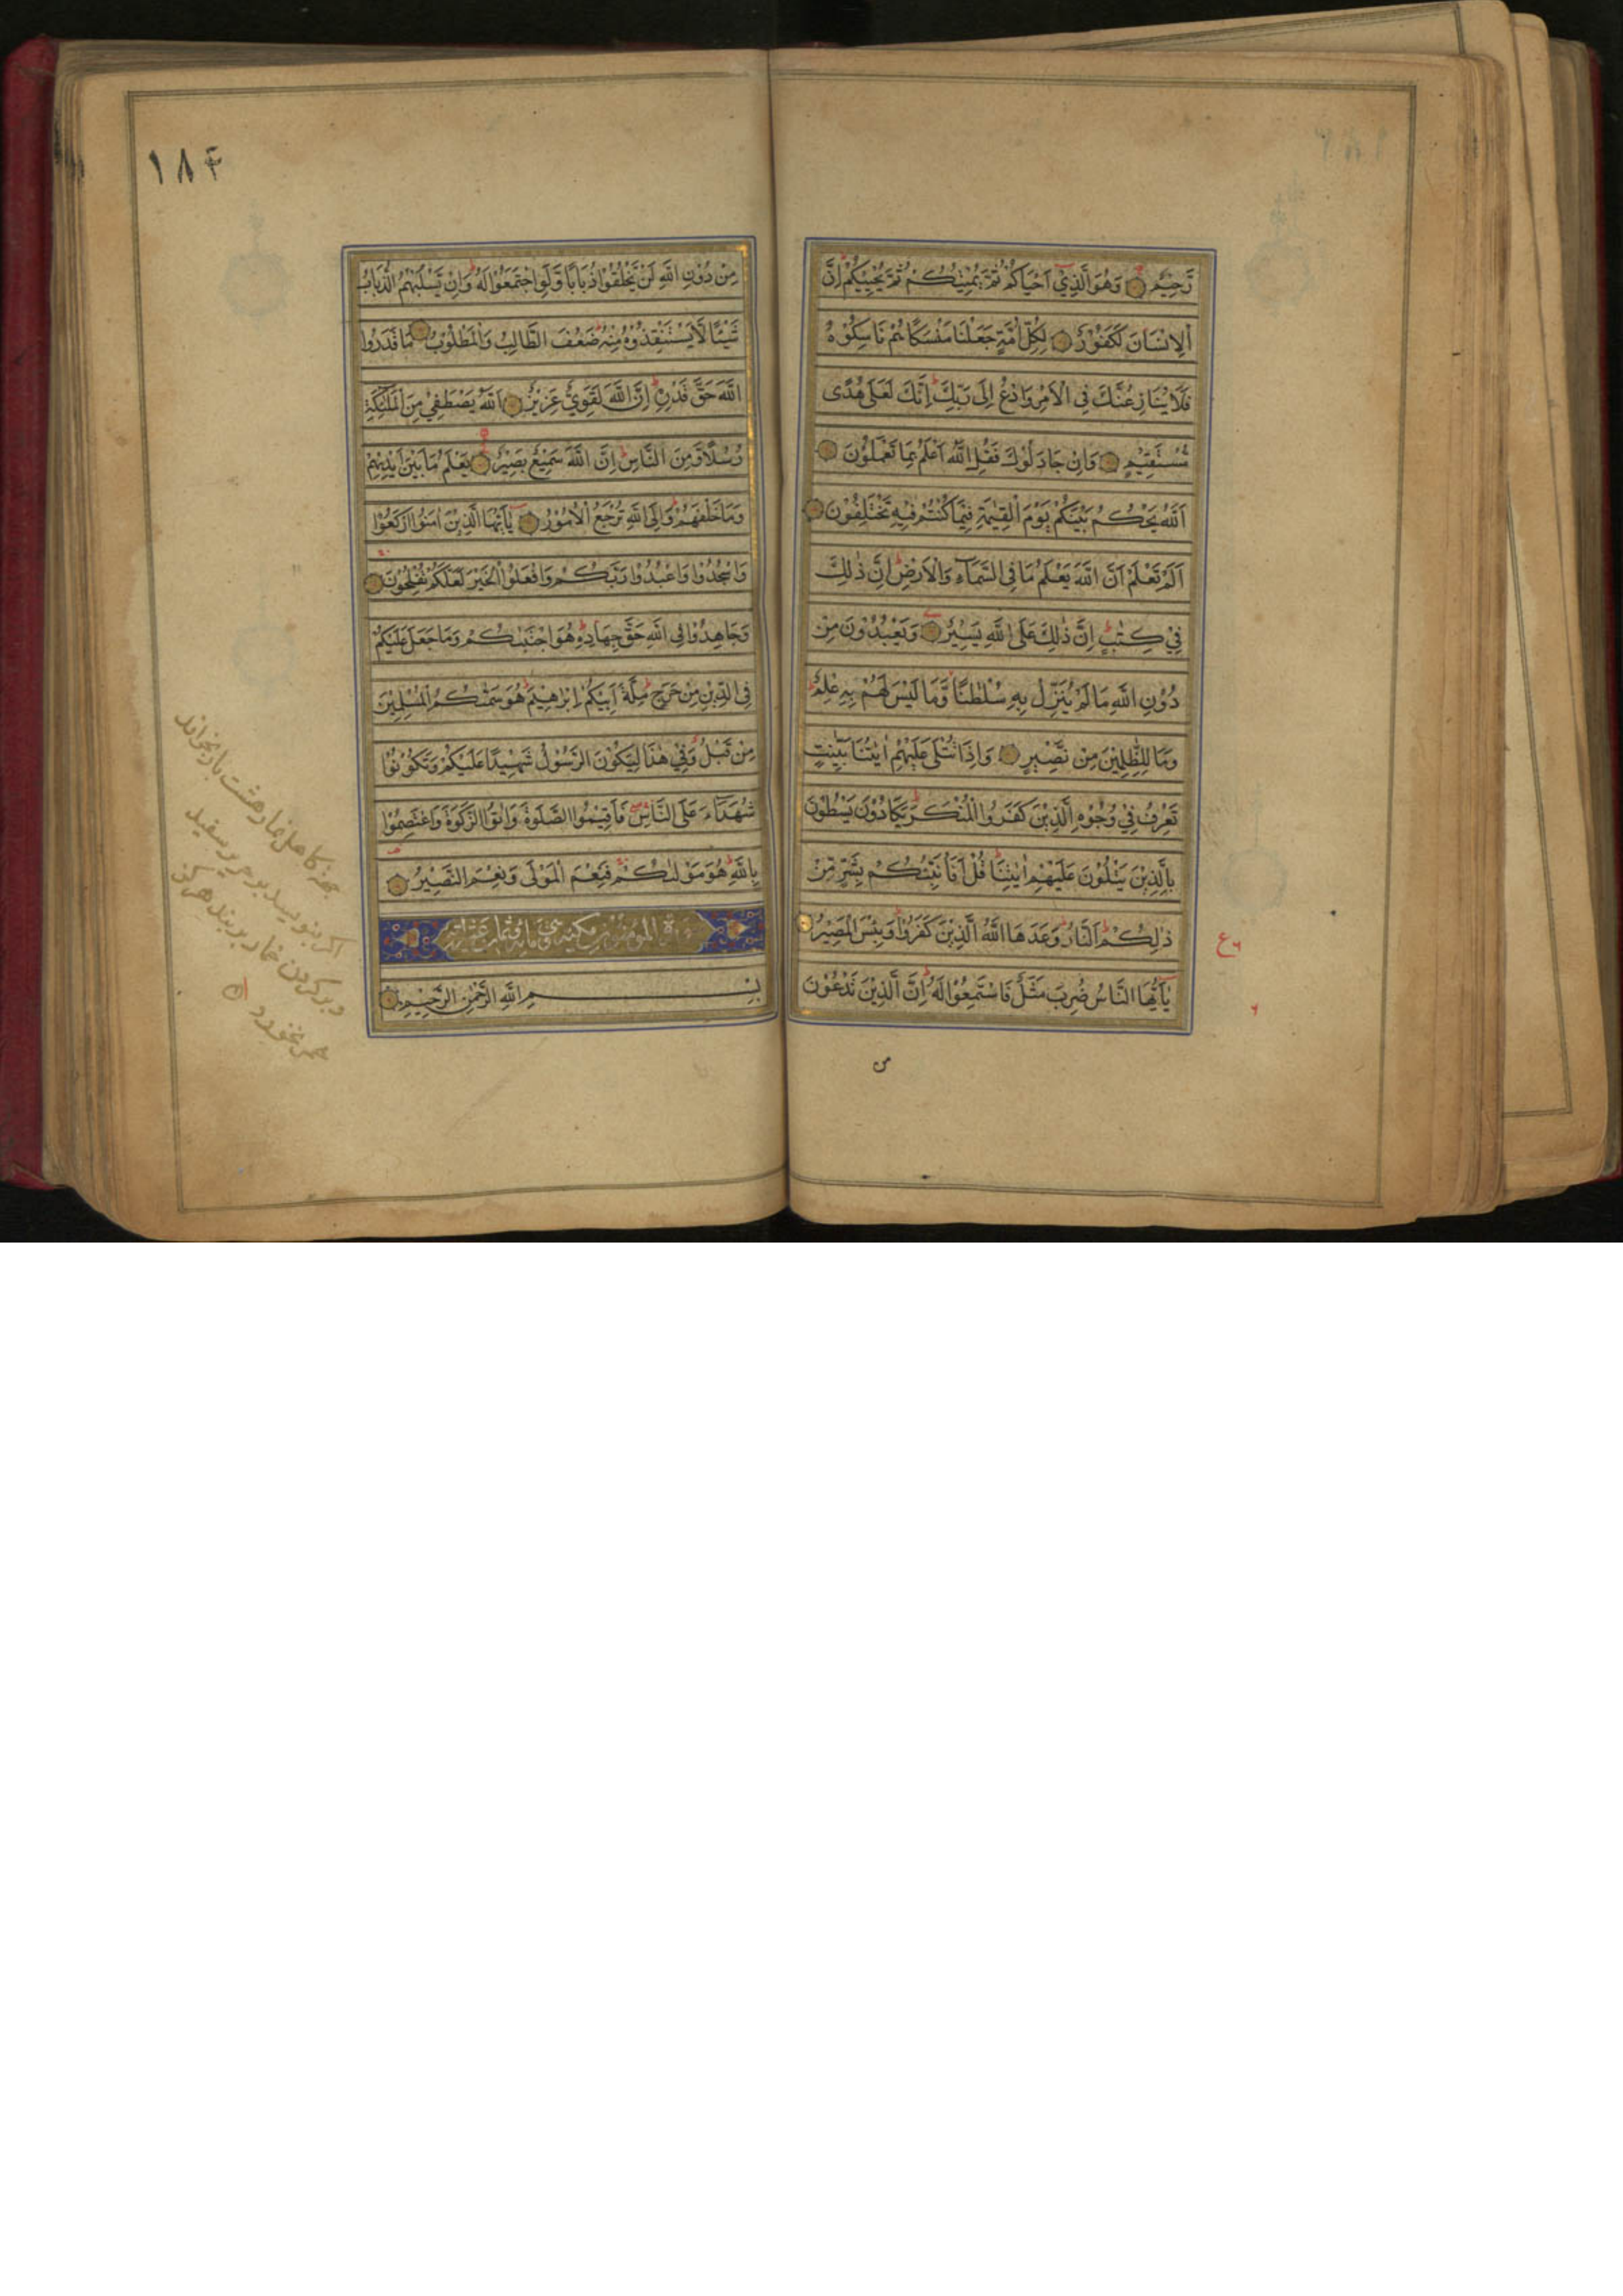 رَّحِيْمٌ وَهُوَ الَّذِيْٓ اَحْيَاكُمْ ثُمَّ يُمِيْتُكُمْ ثُمَّ يُحْيِيْكُمْ اِنَّ
الْاِنْسَانَ لَكَفُوْرٌ لِكُلِّ اُمَّةٍ جَعَلْنَا مَنْسَكًا هُمْ نَاسِكُوْهُ
فَلَا يُنَازِعُنَّكَ فِي الْاَمْرِ وَادْعُ اِلَى رَبِّكَ اِنَّكَ لَعَلَى هُدًى
مُّسْتَقِيْمٍ وَاِنْ جَادَلُوْكَ فَقُلِ اللّٰهُ اَعْلَمُ بِمَا تَعْمَلُوْنَ
اَللّٰهُ يَحْكُمُ بَيْنَكُمْ يَوْمَ الْقِيٰمَةِ فِيْمَا كُنْتُمْ فِيْهِ تَخْتَلِفُوْنَ
اَلَمْ تَعْلَمْ اَنَّ اللّٰهَ يَعْلَمُ مَا فِي السَّمَآءِ وَالْاَرْضِ اِنَّ ذٰلِكَ
فِيْ كِتٰبٍ اِنَّ ذٰلِكَ عَلَى اللّٰهِ يَسِيْرٌ وَيَعْبُدُوْنَ مِنْ
دُوْنِ اللّٰهِ مَا لَمْ يُنَزِّلْ بِهٖ سُلْطٰنًا وَّمَا لَيْسَ لَهُمْ بِهٖ عِلْمٌ
وَمَا لِلظّٰلِمِيْنَ مِنْ نَّصِيْرٍ وَاِذَا تُتْلٰى عَلَيْهِمْ اٰيٰتُنَا بَيِّنٰتٍ
تَعْرِفُ فِيْ وُجُوْهِ الَّذِيْنَ كَفَرُوا الْمُنْكَرَ يَكَادُوْنَ يَسْطُوْنَ
بِالَّذِيْنَ يَتْلُوْنَ عَلَيْهِمْ اٰيٰتِنَا قُلْ اَفَاُنَبِّئُكُمْ بِشَرٍّ مِّنْ
ذٰلِكُمْ اَلنَّارُ وَعَدَهَا اللّٰهُ الَّذِيْنَ كَفَرُوْا وَبِئْسَ الْمَصِيْرُ
يٰٓاَيُّهَا النَّاسُ ضُرِبَ مَثَلٌ فَاسْتَمِعُوْا لَهٗ اِنَّ الَّذِيْنَ تَدْعُوْنَ
من
ع
۱۸۴
مِنْ دُوْنِ اللّٰهِ لَنْ يَّخْلُقُوْا ذُبَابًا وَّلَوِ اجْتَمَعُوْا لَهٗ وَاِنْ يَّسْلُبْهُمُ الذُّبَابُ
شَيْئًا لَّا يَسْتَنْقِذُوْهُ مِنْهُ ضَعُفَ الطَّالِبُ وَالْمَطْلُوْبُ مَا قَدَرُوا
اللّٰهَ حَقَّ قَدْرِهٖ اِنَّ اللّٰهَ لَقَوِيٌّ عَزِيْزٌ اَللّٰهُ يَصْطَفِيْ مِنَ الْمَلٰٓئِكَةِ
رُسُلًا وَّمِنَ النَّاسِ اِنَّ اللّٰهَ سَمِيْعٌ بَصِيْرٌ يَعْلَمُ مَا بَيْنَ اَيْدِيْهِمْ
وَمَا خَلْفَهُمْ وَاِلَى اللّٰهِ تُرْجَعُ الْاُمُوْرُ يٰٓاَيُّهَا الَّذِيْنَ اٰمَنُوا ارْكَعُوْا
وَاسْجُدُوْا وَاعْبُدُوْا رَبَّكُمْ وَافْعَلُوا الْخَيْرَ لَعَلَّكُمْ تُفْلِحُوْنَ
وَجَاهِدُوْا فِي اللّٰهِ حَقَّ جِهَادِهٖ هُوَ اجْتَبٰىكُمْ وَمَا جَعَلَ عَلَيْكُمْ
فِي الدِّيْنِ مِنْ حَرَجٍ مِلَّةَ اَبِيْكُمْ اِبْرٰهِيْمَ هُوَ سَمّٰىكُمُ الْمُسْلِمِيْنَ
مِنْ قَبْلُ وَفِيْ هٰذَا لِيَكُوْنَ الرَّسُوْلُ شَهِيْدًا عَلَيْكُمْ وَتَكُوْنُوْا
شُهَدَآءَ عَلَى النَّاسِ فَاَقِيْمُوا الصَّلٰوةَ وَاٰتُوا الزَّكٰوةَ وَاعْتَصِمُوْا
بِاللّٰهِ هُوَ مَوْلٰىكُمْ فَنِعْمَ الْمَوْلٰى وَنِعْمَ النَّصِيْرُ
سورة المؤمنون مكية وهي مائة وثمان عشر اية
بِسْمِ اللّٰهِ الرَّحْمٰنِ الرَّحِيْمِ